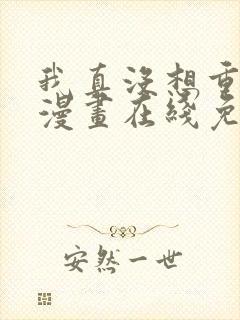 我真没想重
漫畫在綫免
安然一世